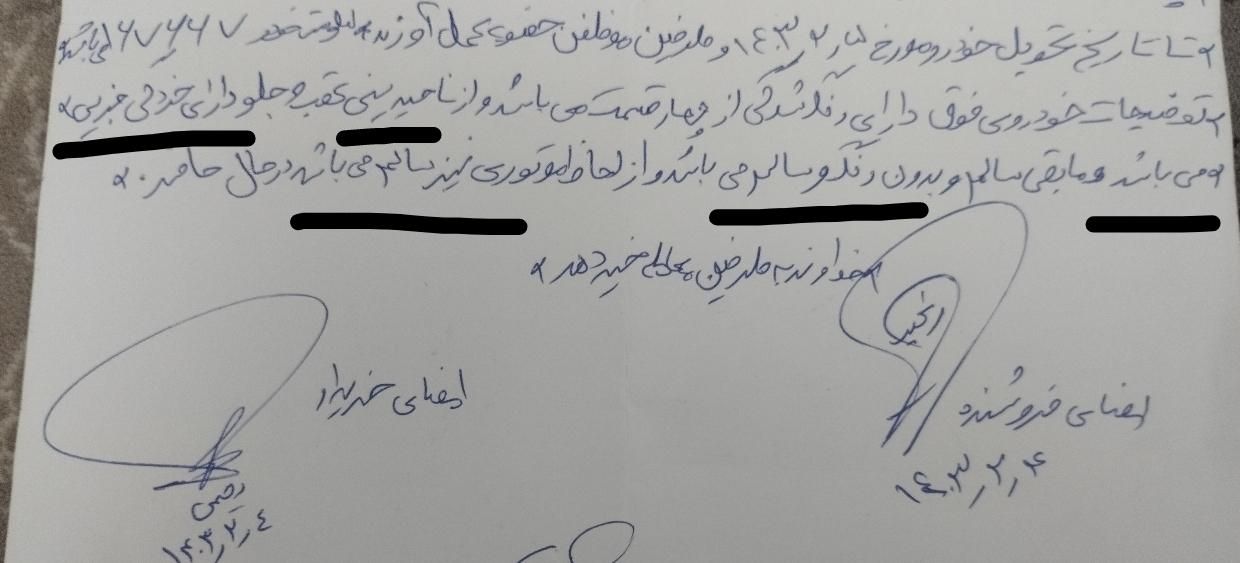 تا تاریخ تحویل خودرو مورخ ۱۴۰۳,۲, و طرفین موظفن حضور بعمل آورند
توضیحات خودروی فوق دارای رنگ شدگی از چهار قسمت می باشد و از ناحیه سینی عقب و جلو دارای خردگی جزیی
می باشد و مابقی سالم و بدون رنگ و سالم می باشد و از لحاظ موتوری نیز سالم می باشد در حال حاضر.
خداوند به طرفین معامله خیر دهد
امضای فروشنده
۱۴۰۳,۲,۴
امضای خریدار
۱۴۰۳,۲,۴